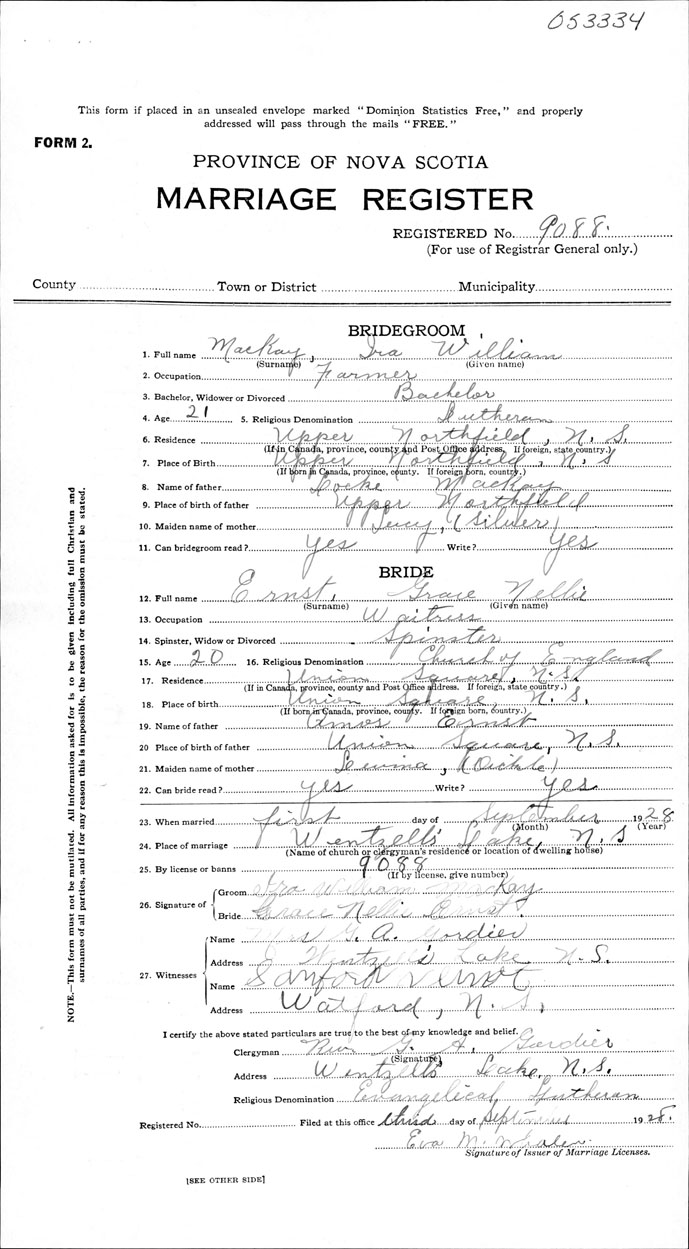 053334
This form if placed in an unsealed envelope marked "Dominion Statistics Free," and properly
addressed will pass through the mails "FREE."
FORM 2.
PROVINCE OF NOVA SCOTIA
MARRIAGE REGISTER
REGISTERED No. 9088.
(For use of Registrar General only.)
County Town or District Municipality
BRIDEGROOM
1. Full name MacKay, Ira William
(Surname) (Given name)
2. Occupation Farmer
3. Bachelor, Widower or Divorced Bachelor
4. Age 21 5. Religious Denomination Lutheran
6. Residence Upper Northfield, N. S.
(If in Canada, province, county and Post Office address. If foreign, state country.)
7. Place of Birth Upper Northfield, N. S
(If born in Canada, province, county. If foreign born, country.)
8. Name of father Locke MacKay
9. Place of birth of father Upper Northfield
10. Maiden name of mother Lucy, (Silver)
11. Can bridegroom read? Yes Write? Yes
BRIDE
12. Full name Ernst, Grace Nellie
(Surname) (Given name)
13. Occupation Waitress
14. Spinster, Widow or Divorced Spinster
15. Age 20 16. Religious Denomination Church of England
17. Residence Union Square, N.S.
(If in Canada, province, county and Post Office address. If foreign, state country.)
18. Place of birth Union Square, N. S.
(If born in Canada, province, county. If foreign born, country.)
19. Name of father Amos Ernst
20 Place of birth of father Union Square, N.S.
21. Maiden name of mother Lewina, (Oickle)
22. Can bride read? yes Write? yes
23. When married first day of September 1928
(Month) (Year)
24. Place of marriage Wentzells Lake, N S
(Name of church or clergyman's residence or location of dwelling house)
25. By license or banns 9088
(If by license, give number)
26. Signature of
Groom Ira William MacKay
Bride Grace Nellie Ernst.
27. Witnesses
Name Mrs G. A. Gordier
Address Wentzells Lake N. S.
Name Sanford
Address Watford, N. S.
I certify the above stated particulars are true to the best of my knowledge and belief.
Clergyman Rev G. A. Gordier
(Signature)
Address Wentzells Lake, N.S.
Religious Denomination Evangelical Lutheran
Registered No. Filed at this office third day of September 1928.
Eva M. Whalen
Signature of Issuer of Marriage Licenses.
[SEE OTHER SIDE]
NOTE.—This form must not be mutilated. All information asked for is to be given including full Christian and
surnames of all parties, and if for any reason this is impossible, the reason for the omission must be stated.